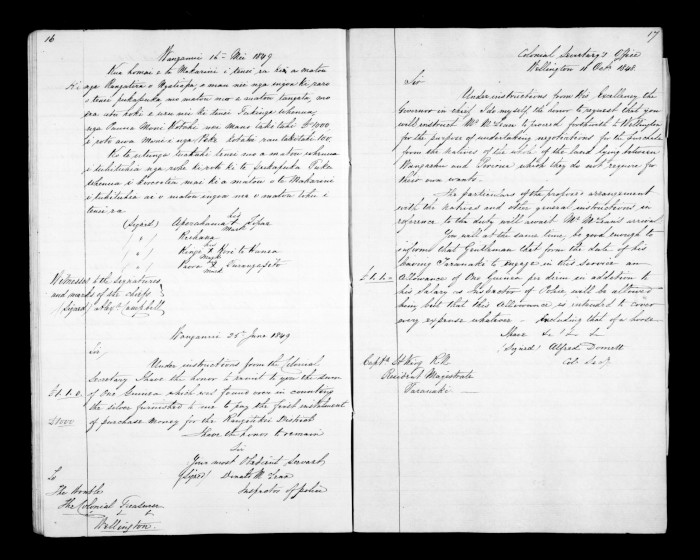 16
Wanganui 16th Mei 1849
Kua homai e te Makarini i tenei ra kia a matou
nga Rangatira o Ngatiapa, o nga ingoa
i tenei pukapuka, mo matou mo o matou tangata, mo
nga Pauna Moni Kotahi mano £1000
Ko te utunga tenei mo o matou whenua
i tuhituhia nga rohe ki te Pukapuka Tuku
whenua i matou o te Makarini
i tuhituhia ai o matou ingoa me o matou tohu i
tenei ra
(Signed) Aperahama his mark Tipae
( " ) 
( " ) Kingi his mark Hori te Hanea
( " ) his mark
Witnesses to the signatures
and marks of the chiefs
(Signed) Campbell
Wanganui 25th June 1849
Sir,
Under instructions from the Colonial
Secretary I have the honor to remit to you the sum
£1.1.0. of One Guinea which was found over in counting
the silver furnished to me to pay the first instalment
£1000 of purchase money for the Rangitikei District
I have the honor to remain
Sir
Your most Obedient Servant
(Signed) Donald McLean
Inspector of Police
To
The Honble
The Colonial Treasurer
Wellington
17
Colonial Secretary's Office
Wellington Octr 1848
Sir
Under instructions from His Excellency the
Governor in chief, I do myself the honor to request that you
will instruct Mr McLean to proceed forthwith to Wellington
for the purpose of undertaking negotiations for the purchase
from the natives of the whole of the land lying between
Wangaehu and Porirua which they do not require for
their own wants.
The particulars of the proposed arrangement
with the natives and other general instructions in
reference to the duty will await Mr McLean's arrival
You will at the same time, be good enough to
inform that Gentleman that from the date of his
leaving Taranaki to engage in this service an
£1.1.0 Allowance of One Guinea per diem in addition to
his Salary as Inspector of Police, will be allowed
him but that this Allowance is intended to cover
every expense whatever - including that of a horse
I have &c &c &c
(Signed) Alfred Domett
Col: Secy
Captn King R.N.
Resident Magistrate
Taranaki